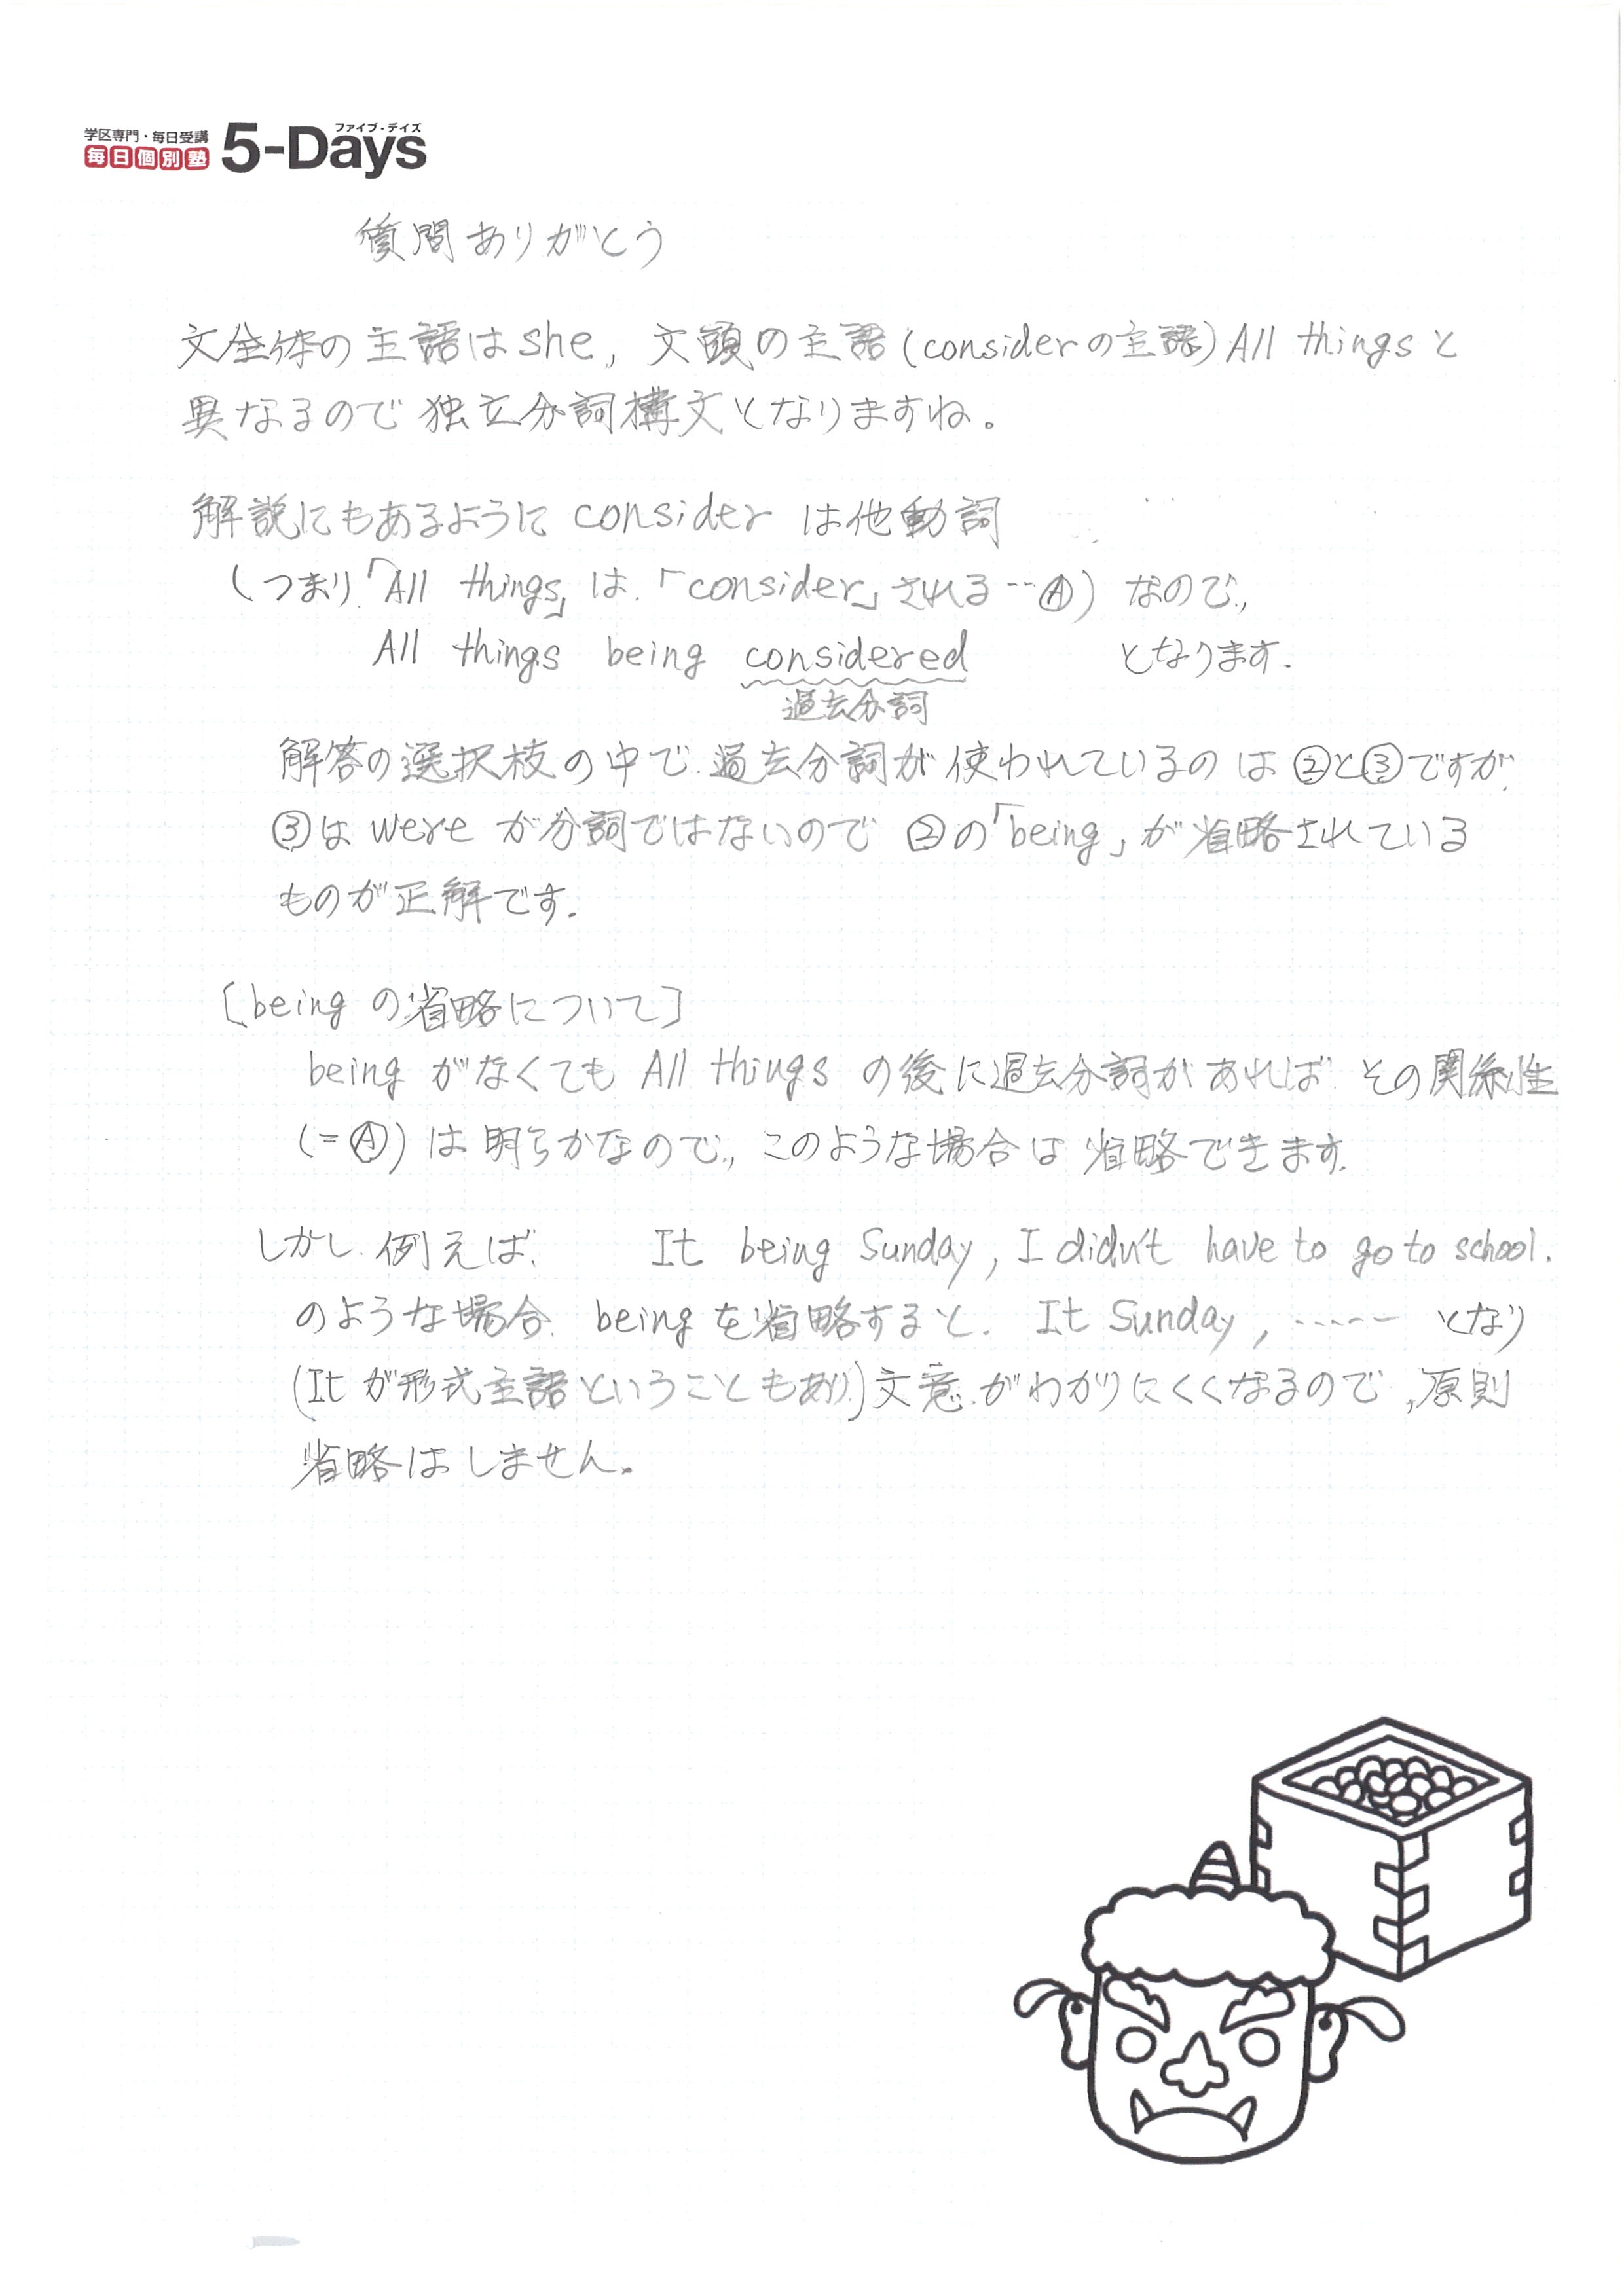 学区専門・毎日受講
毎日個別塾 5-Days
ファイブ・デイズ
質問ありがとう
文全体の主語はshe, 文頭の主語(considerの主語)All thingsと
異なるので独立分詞構文となりますね。
解説にもあるように consider は他動詞
(つまり「All things」は、「consider」される…Ⓐ) なので、
All things being considered となります.
過去分詞
解答の選択枝の中で、過去分詞が使われているのは②と③ですが、
③は were が分詞ではないので ②の「being」が省略されている
ものが正解です.
[being の省略について]
being がなくても All things の後に過去分詞があれば その関係性
(=Ⓐ) は明らかなので、このような場合は省略できます.
しかし、例えば、 It being Sunday, I didn't have to go to school.
のような場合、being を省略すると. It Sunday, ----- となり
(It が形式主語ということもあり)文意がわかりにくくなるので, 原則
省略はしません。